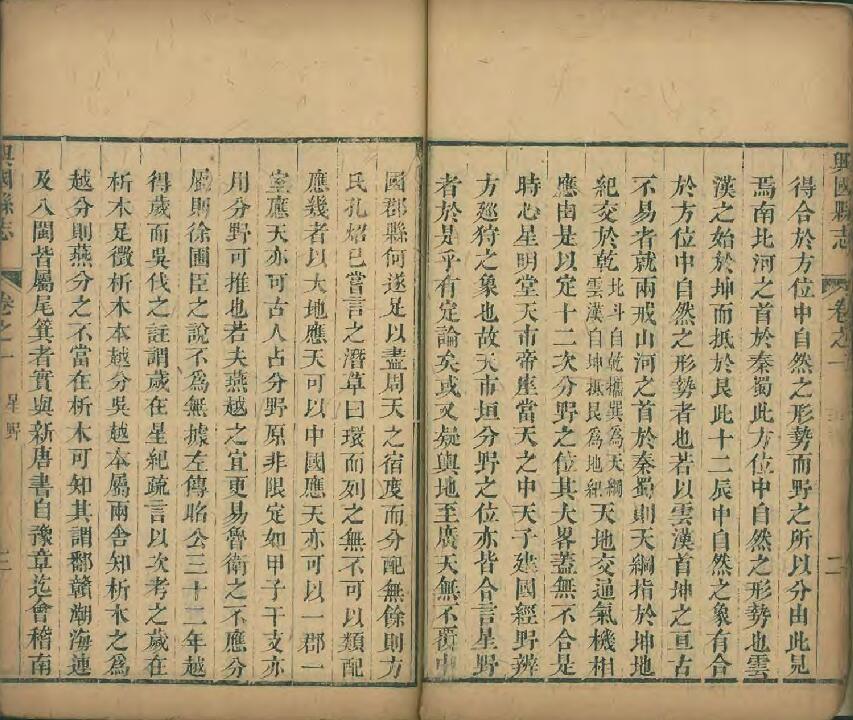 興國縣志
卷之一
二
得合於方位中自然之形勢而野之所以分由此見
焉南北河之首於秦蜀此方位中自然之形勢也雲
漢之始於坤而抵於艮此十二辰中自然之象有合
於方位中自然之形勢者也若以雲漢首坤之亘古
不易者就兩戒山河之首於秦蜀則天綱指於坤地
紀交於乾北斗自乾攜巽為天綱
雲漢自坤抵艮為地紀天地交通氣機相
應由是以定十二次分野之位其大畧蓋無不合是
時心星明堂天市帝座當天之中天子建國經野辨
方廵狩之象也故天市垣分野之位亦皆合言星野
者於是乎有定論矣或又疑輿地至廣天無不覆中
國郡縣何遂足以盡周天之宿度而分配無餘則方
氏孔炤已嘗言之潛草曰環而列之無不可以類配
應幾者以大地應天可以中國應天亦可以一郡一
室應天亦可古人占分野原非限定如甲子干支亦
用分野可推也若夫燕越之宜更易魯衛之不應分
屬則徐圃臣之說不為無據左傳昭公三十二年越
得歲而吳伐之註謂歲在星紀疏言以次考之歲在
析木足徵析木本越分吳越本屬兩舍知析木之為
越分則燕分之不當在析木可知其謂鄱贛潮海連
及八閩皆屬尾箕者實與新唐書自豫章迄會稽南
興國縣志
卷之一
星野
三